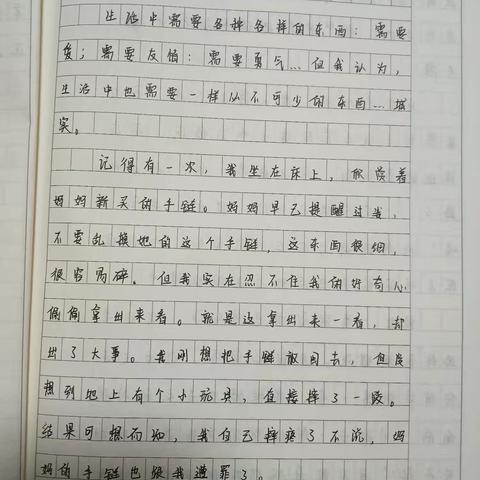 生活中需要各种各样的东西：需要
爱；需要友情：需要勇气…但我认为，
生活中也需要一样必不可少的东西…诚
实。
记得有一次，我坐在床上，欣赏着
妈妈新买的手链。妈妈早已提醒过我，
不要乱换她的这个手链，这东西很细，
很容易碎。但我实在忍不住我的好奇心
偷偷拿出来看。就是这拿出来一看，却
出了大事。我刚想把手链放回去，但没
想到地上有个小玩具，直接摔了一跤。
结果可想而知，我自己摔疼了不说，妈
妈的手链也跟我遭罪了。